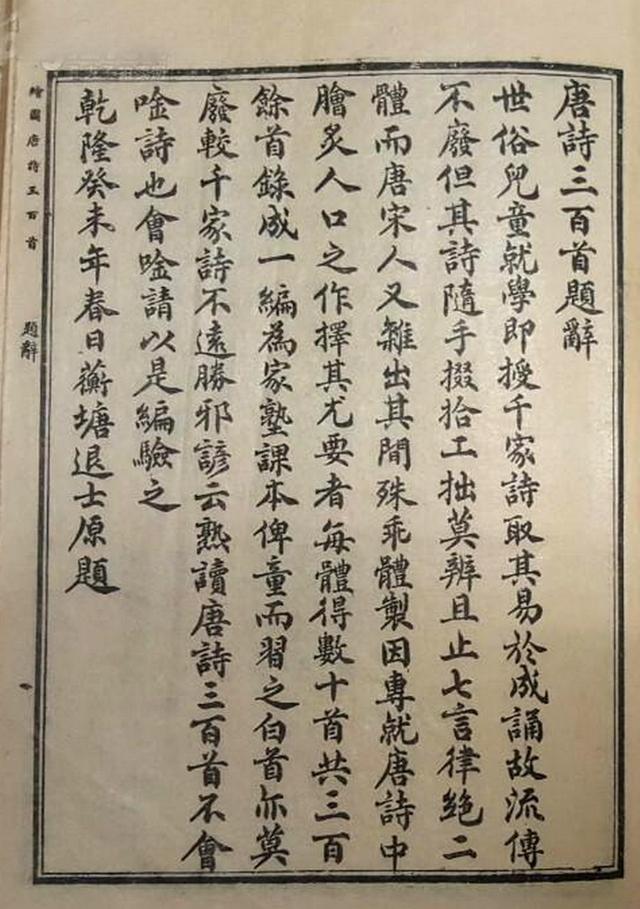 唐詩三百首題辭
世俗兒童就學即授千家詩取其易於成誦故流傳
不廢但其詩隨手掇拾工拙莫辨且止七言律絕二
體而唐宋人又雜出其間殊乖體製因專就唐詩中
膾炙人口之作擇其尤要者每體得數十首共三百
餘首錄成一編為家塾課本俾童而習之白首亦莫
廢較千家詩不遠勝邪諺云熟讀唐詩三百首不會
唫詩也會唫請以是編驗之
乾隆癸未年春日蘅塘退士原題
繪圖唐詩三百首
題辭